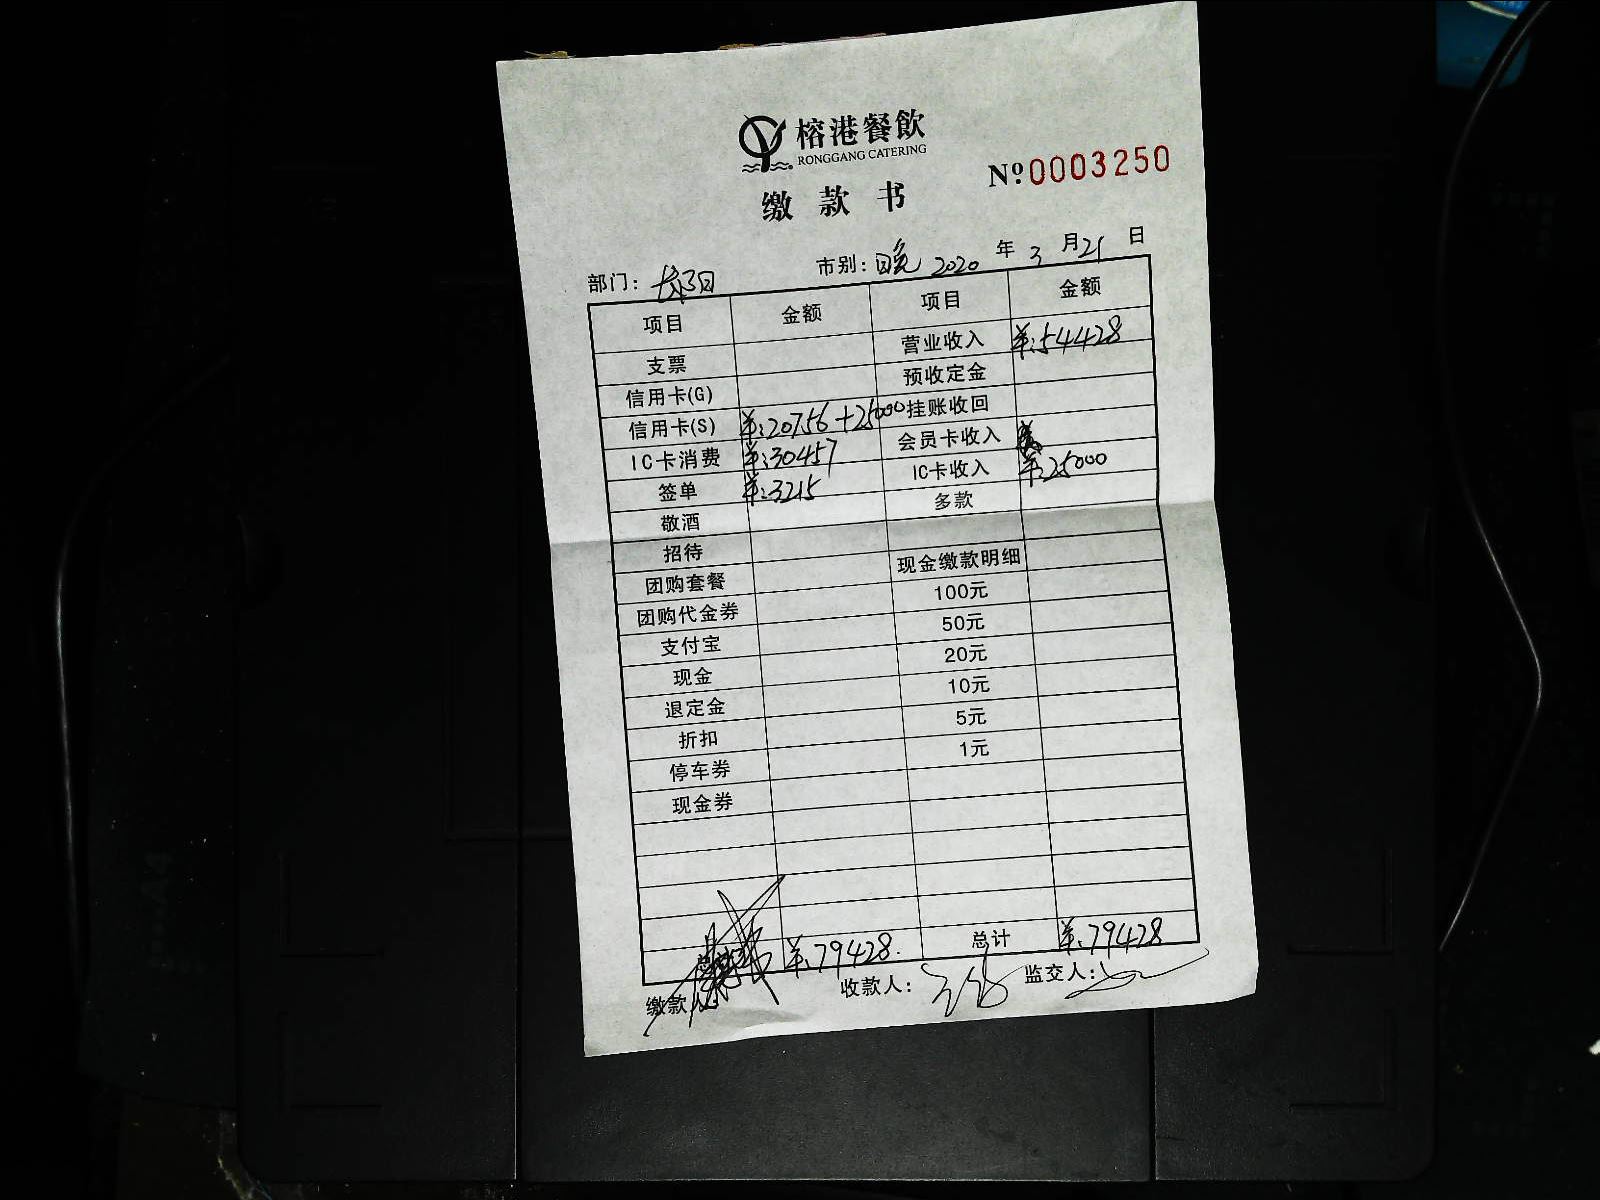 榕港餐飲
RONGGANG CATERING
缴款书
Nº0003250
部门： 市别：晚 2020 年 3 月 21 日
项目 金额 项目 金额
支票 营业收入 ¥:54428
信用卡(G) 预收定金
信用卡(S) ¥:20756+25000 挂账收回
IC卡消费 ¥:30457 会员卡收入
签单 ¥:3215 IC卡收入 ¥:25000
敬酒 多款
招待
团购套餐 现金缴款明细
团购代金券 100元
支付宝 50元
现金 20元
退定金 10元
折扣 5元
停车券 1元
现金券
¥:79428. 总计 ¥:79428
缴款人 收款人： 监交人：